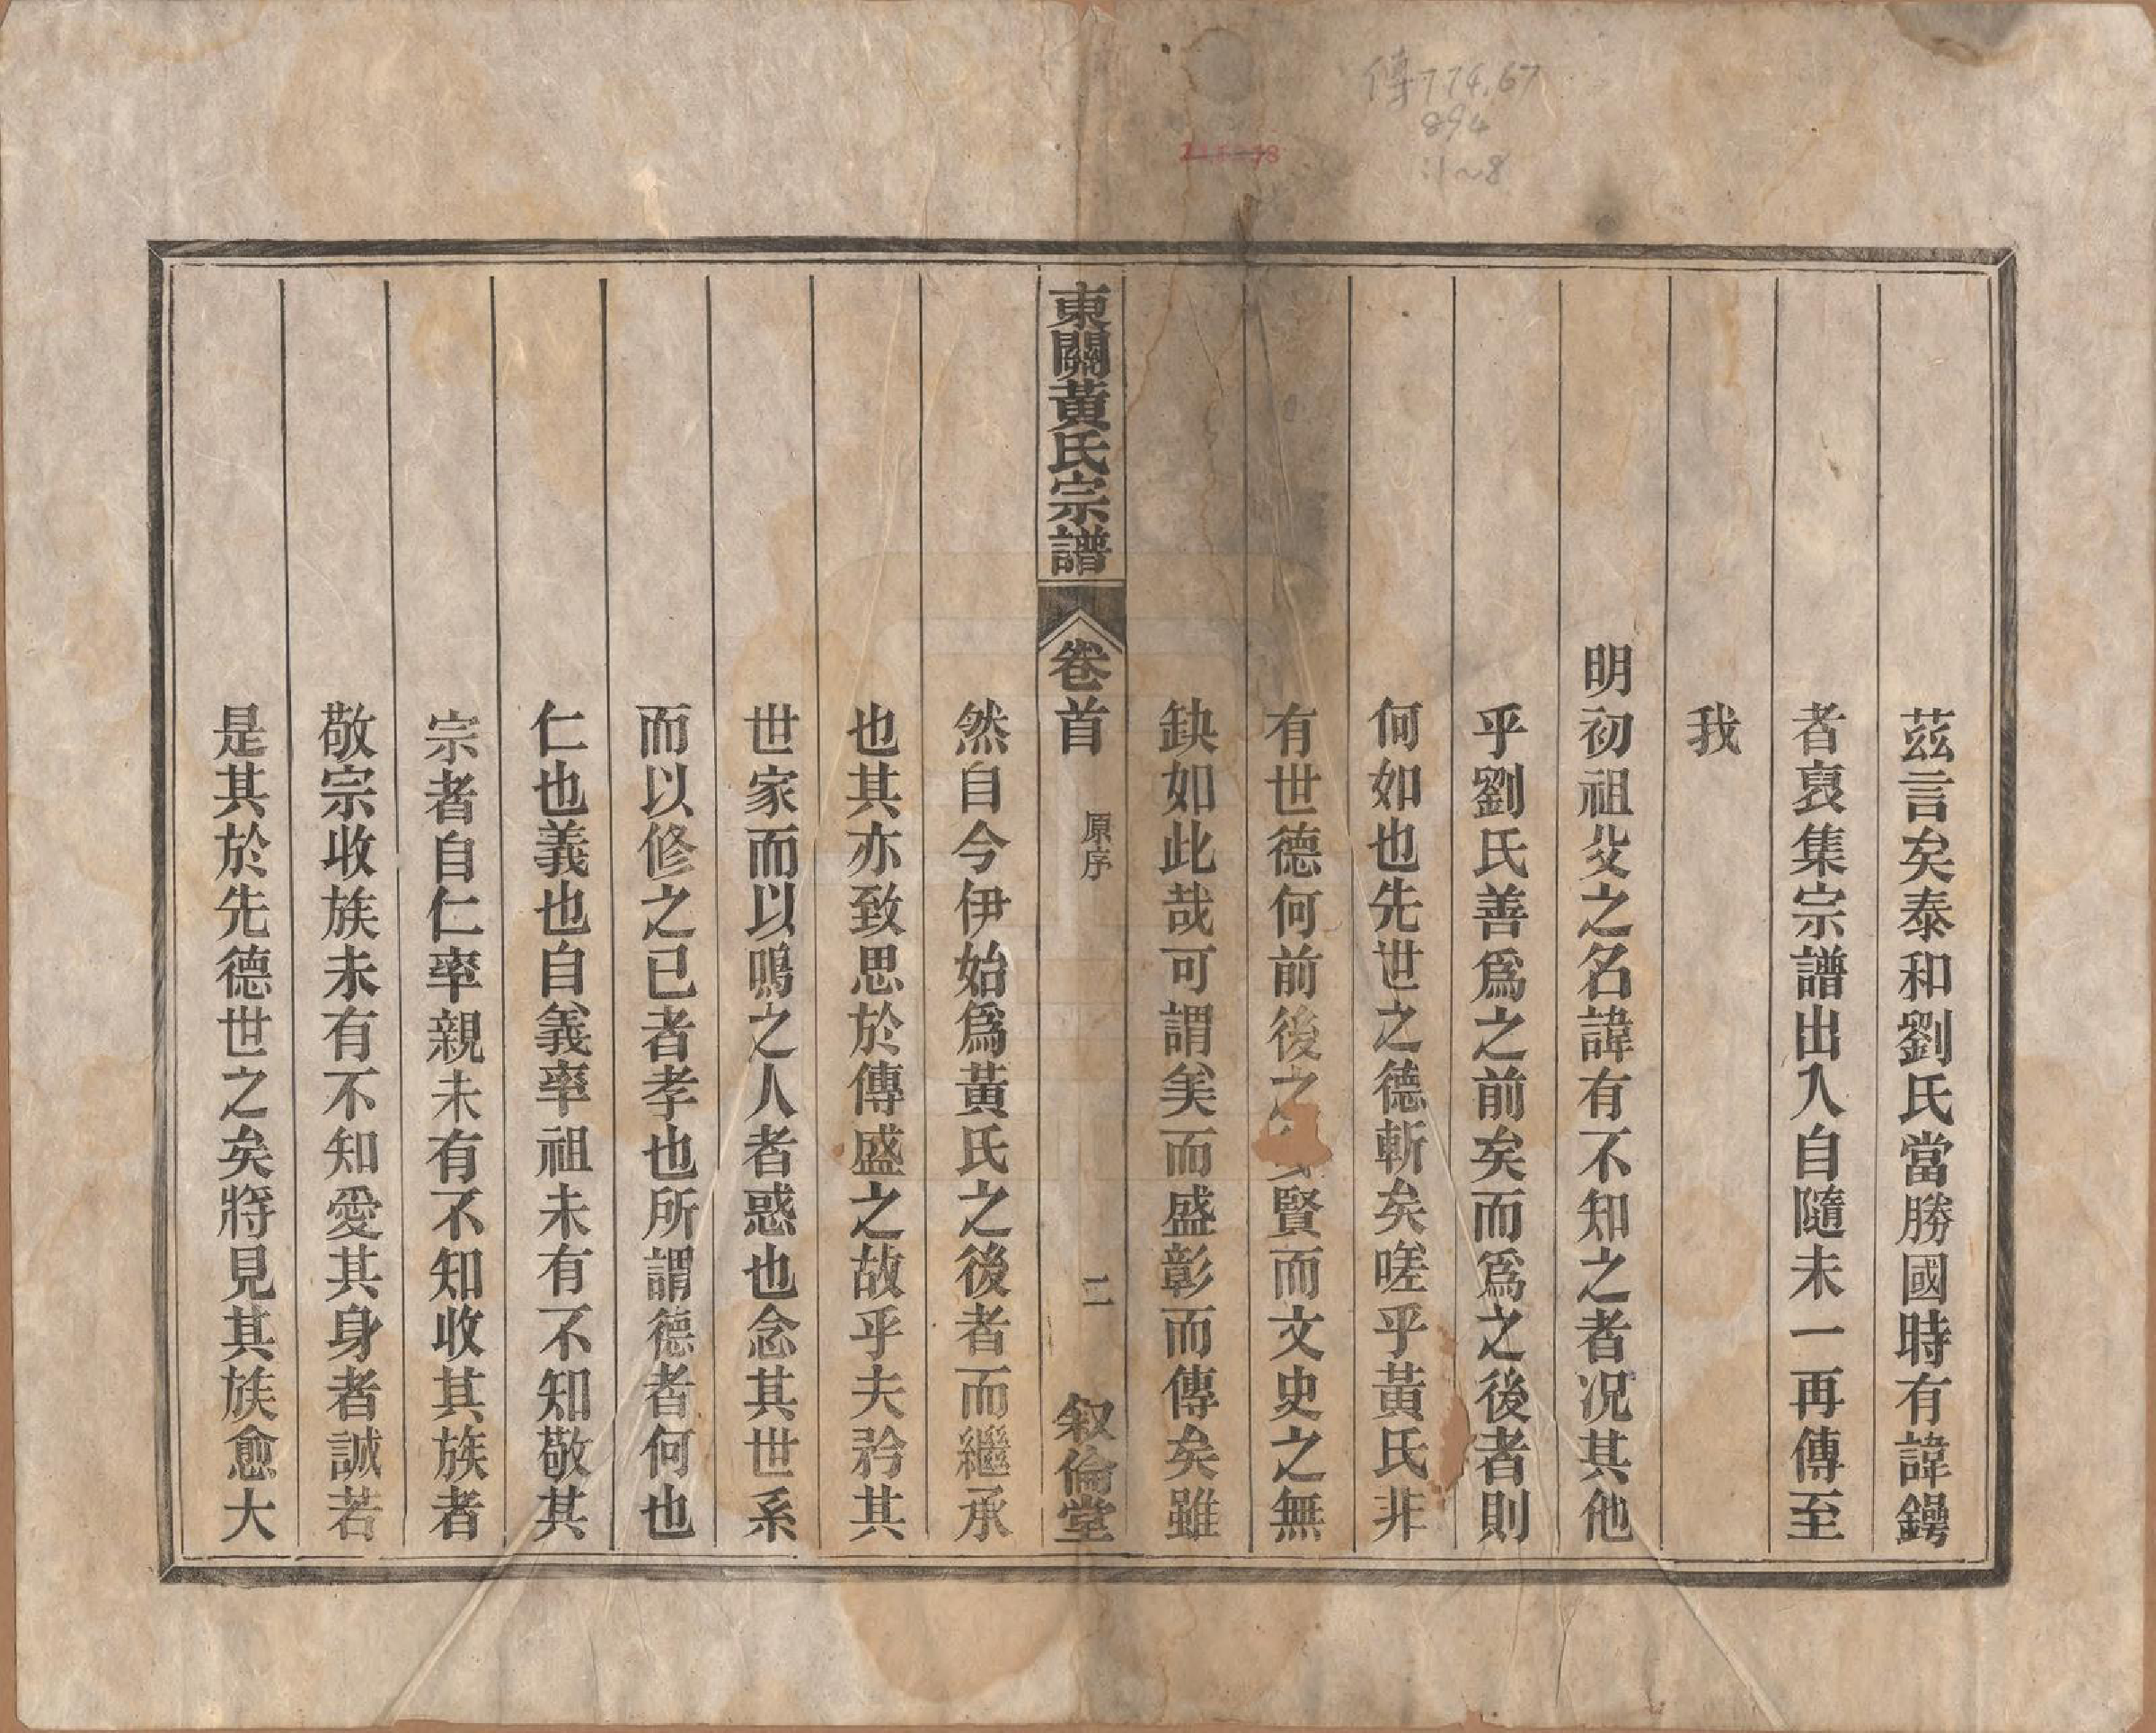 傳774.67
894
:1~8
茲言矣泰和劉氏當勝國時有諱鍔
者裒集宗譜出入自隨未一再傳至
我
明初祖父之名諱有不知之者况其他
乎劉氏善爲之前矣而爲之後者則
何如也先世之德斬矣嗟乎黃氏非
有世德何前後之賢而文史之無
缺如此哉可謂美而盛彰而傳矣雖
東關黃氏宗譜
卷首
原序
二
叙倫堂
然自今伊始爲黃氏之後者而繼承
也其亦致思於傳盛之故乎夫矜其
世家而以鳴之人者惑也念其世系
而以修之已者孝也所謂德者何也
仁也義也自義率祖未有不知敬其
宗者自仁率親未有不知收其族者
敬宗收族未有不知愛其身者誠若
是其於先德世之矣將見其族愈大